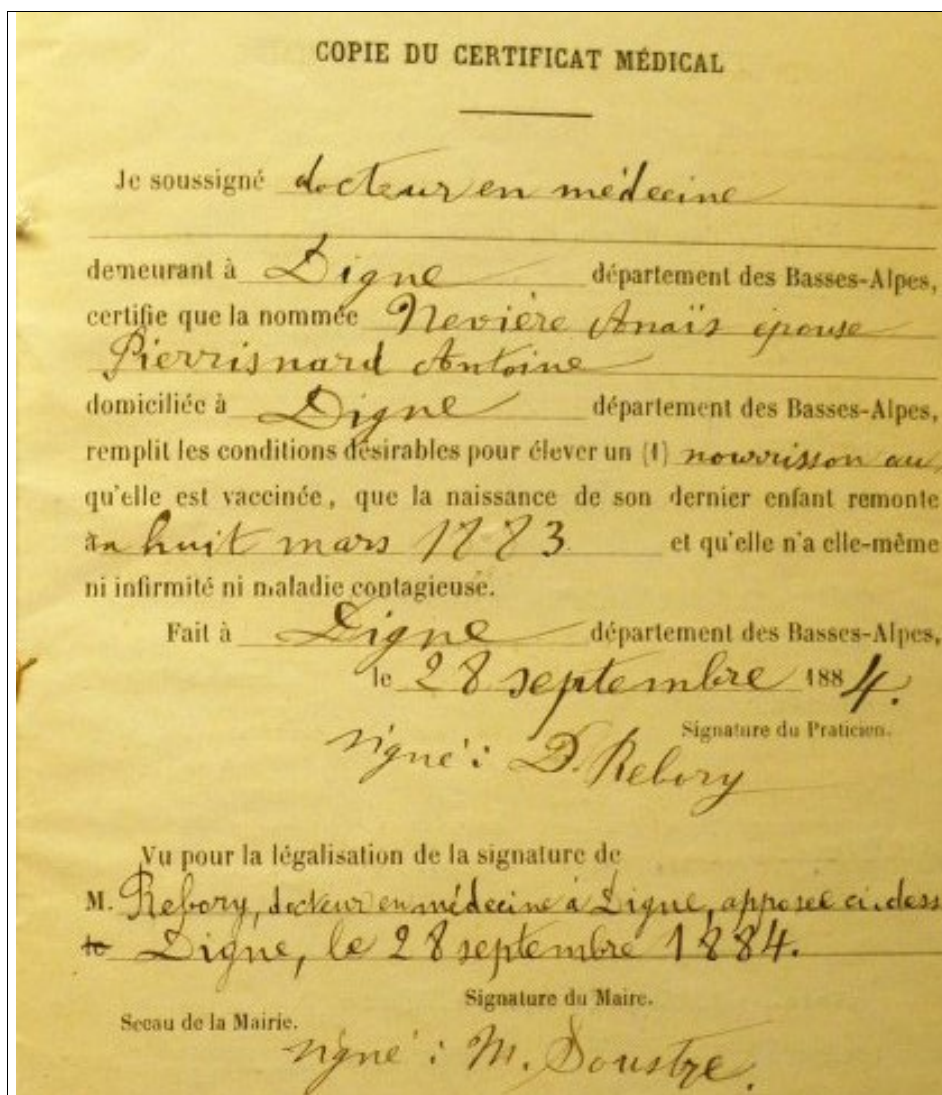 COPIE DU CERTIFICAT MÉDICAL
Je soussigné docteur en médecine
demeurant à Digne département des Basses-Alpes,
certifie que la nommée Nevière Anaïs épouse
Pierrisnard Antoine
domiciliée à Digne département des Basses-Alpes,
remplit les conditions désirables pour élever un (1) nourrisson au
qu'elle est vaccinée, que la naissance de son dernier enfant remonte
au huit mars 1883 et qu'elle n'a elle-même
ni infirmité ni maladie contagieuse.
Fait à Digne département des Basses-Alpes,
le 28 septembre 1884.
Signature du Praticien.
signé : D. Rebory
Vu pour la légalisation de la signature de
M. Rebory, docteur en médecine à Digne, apposée ci-dess
le Digne, le 28 septembre 1884.
Signature du Maire.
Sceau de la Mairie.
signé : M. Soustre.